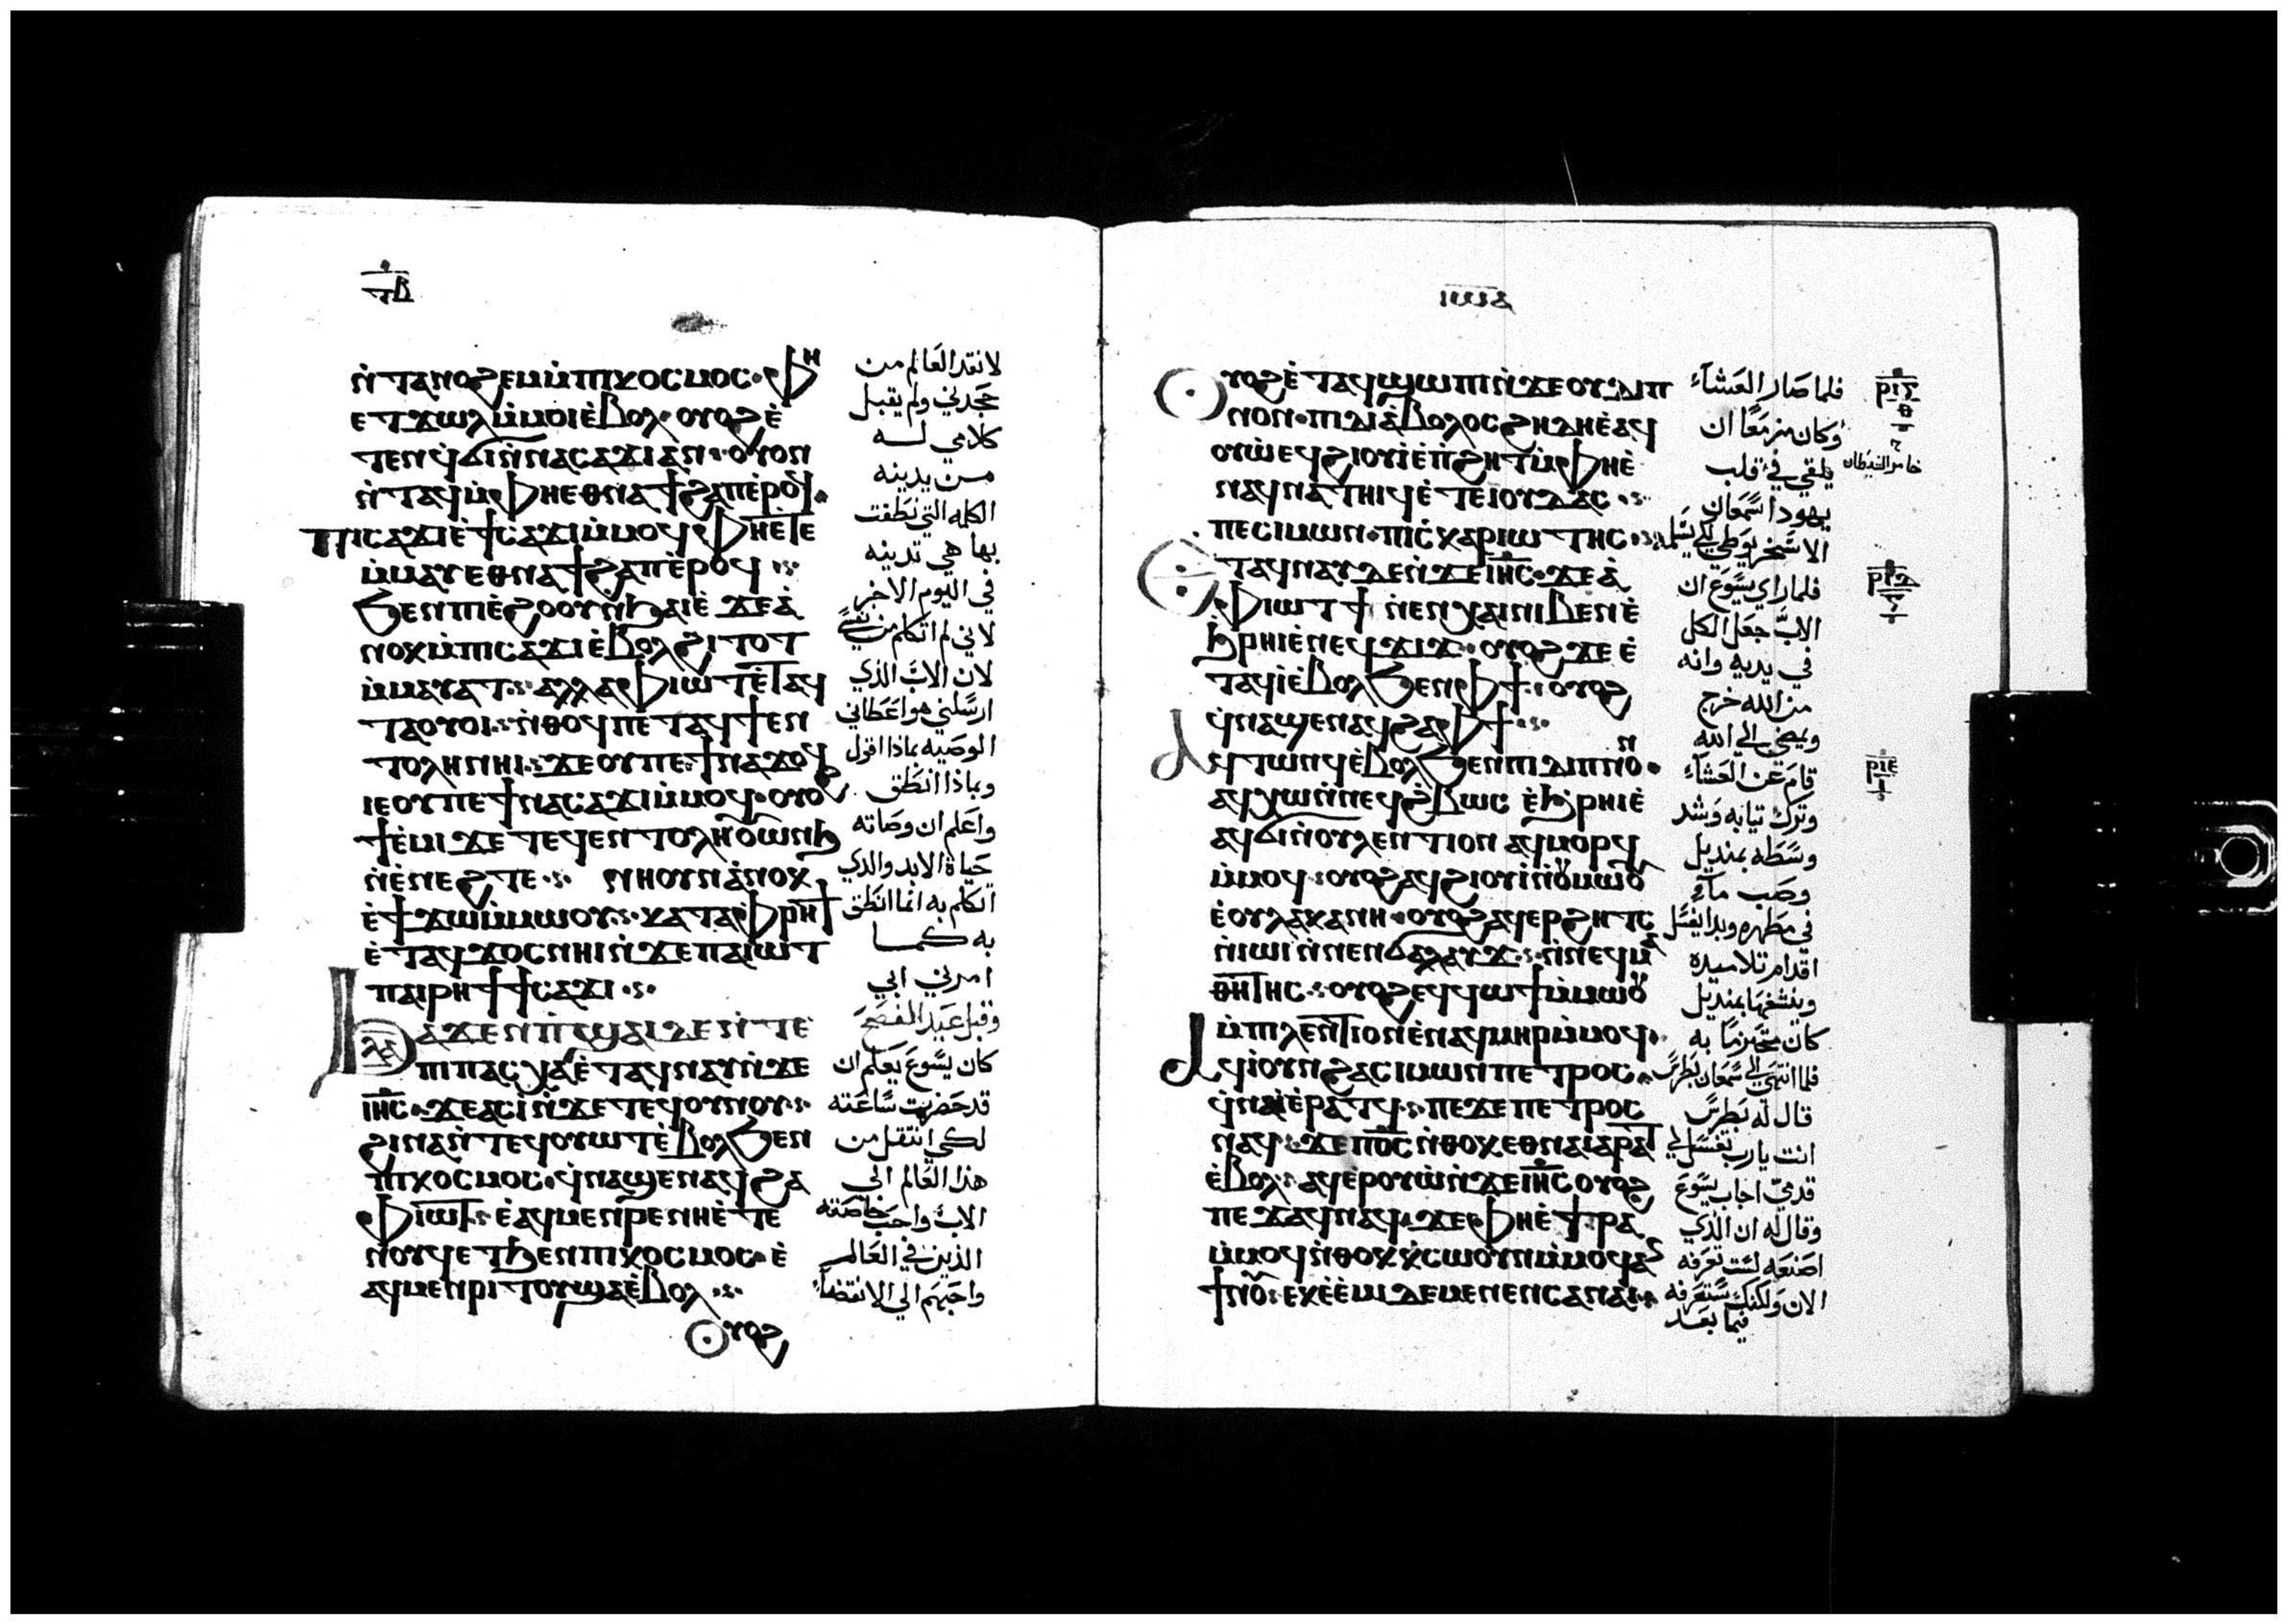 ⲧⲃ
ⲛ̀ⲧⲁⲛⲟϩⲉⲙⲙ̀ⲡⲓⲕⲟⲥⲙⲟⲥ·ⲫⲏ
ⲉⲧϫⲱⲗⲙ̀ⲙⲟⲓⲉ̀ⲃⲟⲗ·ⲟⲩⲟϩⲉ̀
ⲧⲉⲛϥϭⲓⲛ̀ⲛⲁⲥⲁϫⲓⲁⲛ·ⲟⲩⲟⲛ
ⲛ̀ⲧⲁϥⲙ̀ⲫⲏⲉⲑⲛⲁϯϩⲁⲡⲉ̀ⲣⲟϥ·
ⲡⲓⲥⲁϫⲓⲉ̀ϯⲥⲁϫⲓⲙ̀ⲙⲟϥⲫⲏⲉ̀ⲧⲉ
ⲙ̀ⲙⲁⲩⲉⲑⲛⲁϯϩⲁⲡⲉ̀ⲣⲟϥ
ϧⲉⲛⲡⲓⲉ̀ϩⲟⲟⲩⲛ̀ϧⲁⲓⲉ̀ ϫⲉⲁ̀
ⲛⲟⲕⲙ̀ⲡⲓⲥⲁϫⲓⲉ̀ⲃⲟⲗϩⲓⲧⲟⲧ
ⲙ̀ⲙⲁⲩⲁⲧ·ⲁⲗⲗⲁⲫⲓⲱⲧⲉ̀ⲧⲁϥ
ⲧⲁⲟⲩⲟⲓ·ⲛ̀ⲑⲟϥⲡⲉⲧⲁϥϯⲉⲛ
ⲧⲟⲗⲏⲛⲏⲓ·ϫⲉⲟⲩⲡⲉϯⲛⲁϫⲟϥ
ⲓⲉⲟⲩⲡⲉϯⲛⲁⲥⲁϫⲓⲙ̀ⲙⲟϥ·ⲟⲩⲟϩ
ϯⲉ̀ⲙⲓϫⲉⲧⲉϥⲉⲛⲧⲟⲗⲏⲟⲩⲱⲛϧ
ⲛ̀ⲉ̀ⲛⲉϩⲧⲉ· ⲛⲏⲟⲩⲛⲁ̀ⲛⲟⲕ
ⲉ̀ϯϫⲱⲙ̀ⲙⲱⲟⲩ·ⲕⲁⲧⲁⲫⲣⲏϯ
ⲉ̀ⲧⲁϥϫⲟⲥⲛⲏⲓⲛ̀ϫⲉⲡⲁⲓⲱⲧ
ⲡⲁⲓⲣⲏϯϯⲥⲁϫⲓ·
ⲗⲁ
ϧⲁϫⲉⲛⲡ̀ϣⲁⲓⲇⲉⲛ̀ⲧⲉ
ⲡⲓⲡⲁⲥⲭⲁⲉ̀ⲧⲁϥⲛⲁⲩⲛ̀ϫⲉ
ⲓⲏⲥ·ϫⲉⲁⲥⲓ̀ⲛ̀ϫⲉⲧⲉϥⲟⲩⲛⲟⲩ·
ϩⲓⲛⲁⲛ̀ⲧⲉϥⲟⲩⲱⲧⲉ̀ⲃⲟⲗϧⲉⲛ
ⲡⲓⲕⲟⲥⲙⲟⲥ·ϥ̀ⲛⲁϣⲉⲛⲁϥϩⲁ
ⲫⲓⲱⲧ·ⲉ̀ⲁϥⲙⲉⲛⲣⲉⲛⲏⲉ̀ⲧⲉ
ⲛⲟⲩϥⲉⲧϧⲉⲛⲡⲓⲕⲟⲥⲙⲟⲥ·ⲉ̀
ⲁϥⲙⲉⲛⲣⲓⲧⲟⲩϣⲁⲉ̀ⲃⲟⲗ·
ⲟⲩⲟϩ
لا نقد العالم من
جحدني ولم يقبل
كلامي له
من يدينه
الكلمه التي نطقت
بها هي تدينه
في اليوم الاخر
لاني لم اتكلم من نفسي
لان الابّ الذي
ارسلني هو اعطاني
الوصيه بماذا اقول
وبماذا انطق
واعلم ان وصاته
حياة الابد والذي
اتكلم به انما انطق
به كما
امرني ابي
وقبل عيد الفصح
كان يسوع يعلم ان
قد حضرت ساعته
لكي انتقل من
هذا العالم الي
الاب واحب خاصته
الذين في العالم
واحبهم الي الانقضاء
ⲓⲱⲁ
ⲟⲩⲟϩⲉ̀ⲧⲁϥϣⲱⲡⲓⲛ̀ϫⲉⲟⲩⲇⲓⲡ
ⲛⲟⲛ·ⲡⲓⲇⲓⲁ̀ⲃⲟⲗⲟⲥϩⲏⲇⲏⲉ̀ⲁϥ
ⲟⲩⲱⲉϥϩⲓⲟⲩⲓ̀ⲉ̀ⲡ̀ϩⲏⲧⲙ̀ⲫⲏⲉ̀
ⲛⲁϥⲛⲁⲧⲏⲓϥⲉ̀ⲧⲉⲓⲟⲩⲇⲁⲥ·
ⲡⲉⲥⲓⲙⲱⲛ·ⲡⲓⲥ̀ⲕⲁⲣⲓⲱⲧⲏⲥ·
ⲉⲧⲁϥⲛⲁⲩⲇⲉⲛ̀ϫⲉⲓⲏⲥ·ϫⲉⲁ̀
ⲫⲓⲱⲧϯ ⲛ̀ⲉⲛⲭⲁⲓⲛⲓⲃⲉⲛⲉ̀
ϧ̀ⲣⲏⲓⲉ̀ⲛⲉϥϫⲓϫ·ⲟⲩⲟϩϫⲉⲉ̀
ⲧⲁϥⲓ̀ⲉ̀ⲃⲟⲗϧⲉⲛⲫϯ·ⲟⲩⲟϩ
ϥ̀ⲛⲁϣⲉⲛⲁϥϩⲁⲫϯ·
ⲁϥⲧⲱⲛϥⲉ̀ⲃⲟⲗϧⲉⲛⲡⲓⲇⲓⲡⲛⲟⲛ·
ⲁϥⲭⲱⲛ̀ⲛⲉϥϩ̀ⲃⲱⲥ ⲉ̀ϧ̀ⲣⲏⲓⲉ̀
ⲁϥϭⲓⲛ̀ⲟⲩⲗⲉⲛⲧⲓⲟⲛ ⲁϥⲙⲟⲣϥ
ⲙ̀ⲙⲟϥ·ⲟⲩⲟϩⲁϥϩⲓⲟⲩⲓ̀ⲛ̀ⲟⲩⲙⲱⲟⲩ
ⲉ̀ⲟⲩⲗⲁⲕⲁⲛⲏ·ⲟⲩⲟϩⲁϥⲉⲣϩⲏⲧⲥ
ⲛ̀ⲓⲱⲓⲛ̀ⲛⲉⲛϭⲁⲗⲁⲩϫ·ⲛ̀ⲛⲉϥⲙⲁ
ⲑⲏⲧⲏⲥ·ⲟⲩⲟϩⲉϥϥⲱϯⲙ̀ⲙⲱⲟⲩ
ⲙ̀ⲡⲓⲗⲉⲛⲧⲓⲟⲛⲉ̀ⲛⲁϥⲙⲏⲣⲙ̀ⲙⲟϥ·
ⲁϥⲓⲟⲩⲛϩⲁⲥⲓⲙⲱⲛⲡⲉⲧⲣⲟⲥ·
ϥ̀ⲛⲁⲓⲉ̀ⲣⲁⲧϥ·ⲡⲉϫⲉⲡⲉⲧⲣⲟⲥ
ⲛⲁϥ·ϫⲉⲡⲟ̅ⲥ̅ⲛ̀ⲑⲟⲕⲉⲑⲛⲁⲓⲁⲣⲁⲧ
ⲉ̀ⲃⲟⲗ·ⲁϥⲉ̀ⲣⲟⲩⲱ̀ⲛ̀ϫⲉⲓⲏⲥⲟⲩⲟϩ
ⲡⲉϫⲁϥⲛⲁϥ·ϫⲉⲫⲏⲉ̀ϯⲣⲁ
ⲙ̀ⲙⲟϥⲛ̀ⲑⲟⲕⲕ̀ⲥⲱⲟⲩⲛⲙ̀ⲙⲟϥⲁⲛ
ϯⲛⲟⲩ·ⲉⲕⲉ̀ⲉ̀ⲙⲓⲇⲉⲙⲉⲛⲉⲛⲥⲁⲛⲁⲓ·
فلما صار العشاء
وكان مزمعا ان
يلقي في قلب
يهودا سمعان
الاسخريوطي لكي يسلمه
فلما راي يسوع ان
الابّ جعل الكل
في يديه وانه
من الله خرج
ويمضي الي الله
قام عن العشاء
وترك ثيابه وشد
وسطه بمنديل
وصب ماء
في مطهره وبدا يغسل
اقدام تلاميذه
وينشفها بمنديل
كان متحزما به
فلما انتهي الي سمعان بطرس
قال له بطرس
انت يا رب تغسل لي
قدميّ اجاب يسوع
وقال له ان الذي
اصنعه لست تعرفه
الان ولكنك ستعرفه
فيما بعد